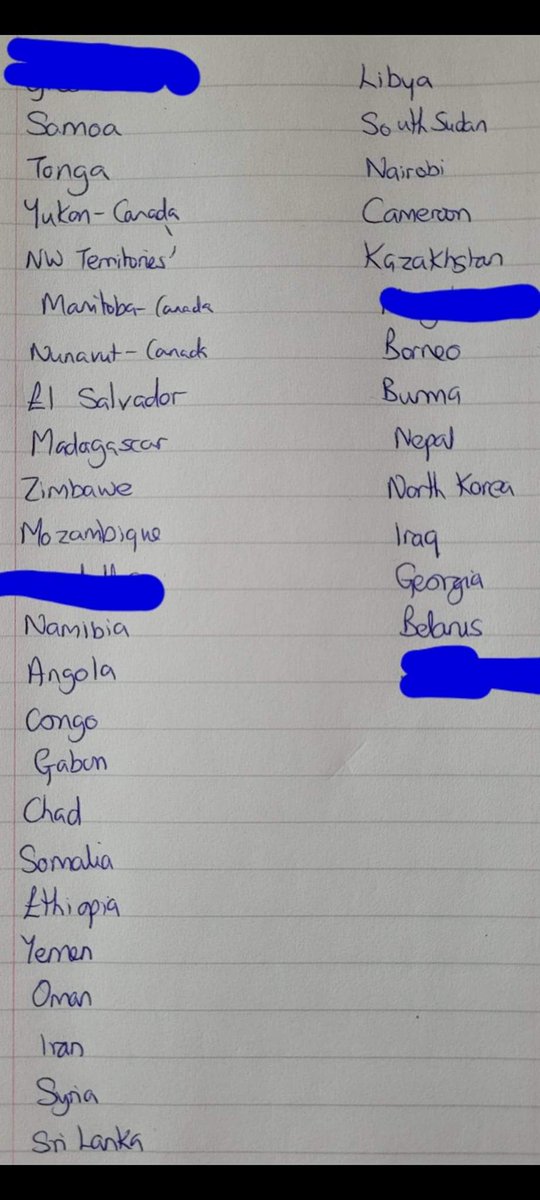 Samoa
Tonga
Yukon - Canada
NW Territories'
Manitoba - Canada
Nunavut - Canada
El Salvador
Madagascar
Zimbawe
Mozambique
Namibia
Angola
Congo
Gabon
Chad
Somalia
Ethiopia
Yemen
Oman
Iran
Syria
Sri Lanka
Libya
South Sudan
Nairobi
Cameroon
Kazakhstan
Borneo
Burma
Nepal
North Korea
Iraq
Georgia
Belarus